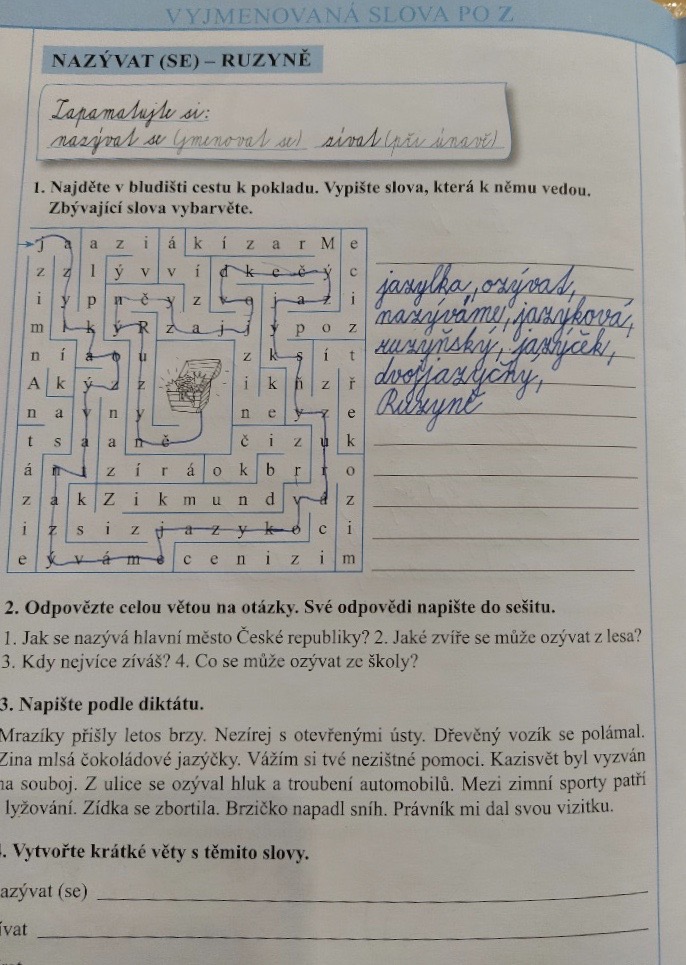 VYJMENOVANÁ SLOVA PO Z
NAZÝVAT (SE) – RUZYNĚ
Zapamatujte si:
nazývat se (jmenovat se) zívat (při únavě)
1. Najděte v bludišti cestu k pokladu. Vypište slova, která k němu vedou.
Zbývající slova vybarvěte.
j a a z i á k í z a r M e
z z l ý v v í d k e č ý c
i y p n č y z v o j a z i
m l k ý R z a j j ý p o z
n í a o u z k s í t
A k ý z z i k ň z ř
n a v n y n e y z e
t s a a n ě č i z u k
á n i z í r á o k b r r o
z a k Z i k m u n d v á z
i z s i z j a z y k o c i
e ý v á m e c e n i z i m
jazylka, ozývat,
nazýváme, jazyková,
ruzyňský, jazýček,
dvojjazyčný,
Ruzyně
2. Odpovězte celou větou na otázky. Své odpovědi napište do sešitu.
1. Jak se nazývá hlavní město České republiky? 2. Jaké zvíře se může ozývat z lesa?
3. Kdy nejvíce zíváš? 4. Co se může ozývat ze školy?
3. Napište podle diktátu.
Mrazíky přišly letos brzy. Nezírej s otevřenými ústy. Dřevěný vozík se polámal.
Zina mlsá čokoládové jazýčky. Vážím si tvé nezištné pomoci. Kazisvět byl vyzván
na souboj. Z ulice se ozýval hluk a troubení automobilů. Mezi zimní sporty patří
lyžování. Zídka se zbortila. Brzičko napadl sníh. Právník mi dal svou vizitku.
. Vytvořte krátké věty s těmito slovy.
azývat (se)
ívat